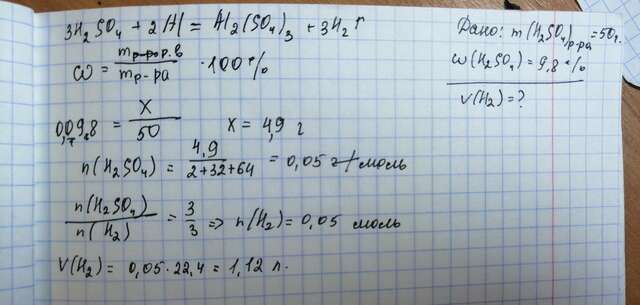 3H₂SO₄ + 2Al = Al₂(SO₄)₃ + 3H₂↑
ω = mр-ор.в / mр-ра · 100%
= X / 50 X = 4,9 г
n(H₂SO₄) = 4,9 / 2+32+64 = 0,05 моль
n(H₂SO₄) / n(H₂) = 3/3 => n(H₂) = 0,05 моль
V(H₂) = 0,05·22,4 = 1,12 л.
Дано: m(H₂SO₄)р-ра = 50г.
ω(H₂SO₄) = 9,8%
V(H₂) = ?